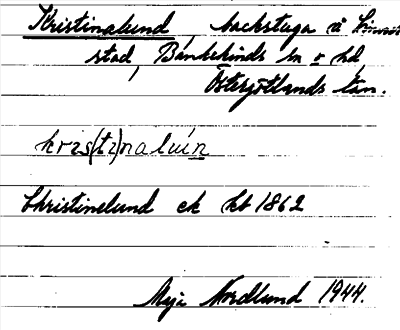 Kristinalund, backstuga å
stad, Bankekinds sn o hd,
Östergötlands län.
kris(ti)naluǹn
Christinelund ek kb 1862
Maja Nordlund 1944.